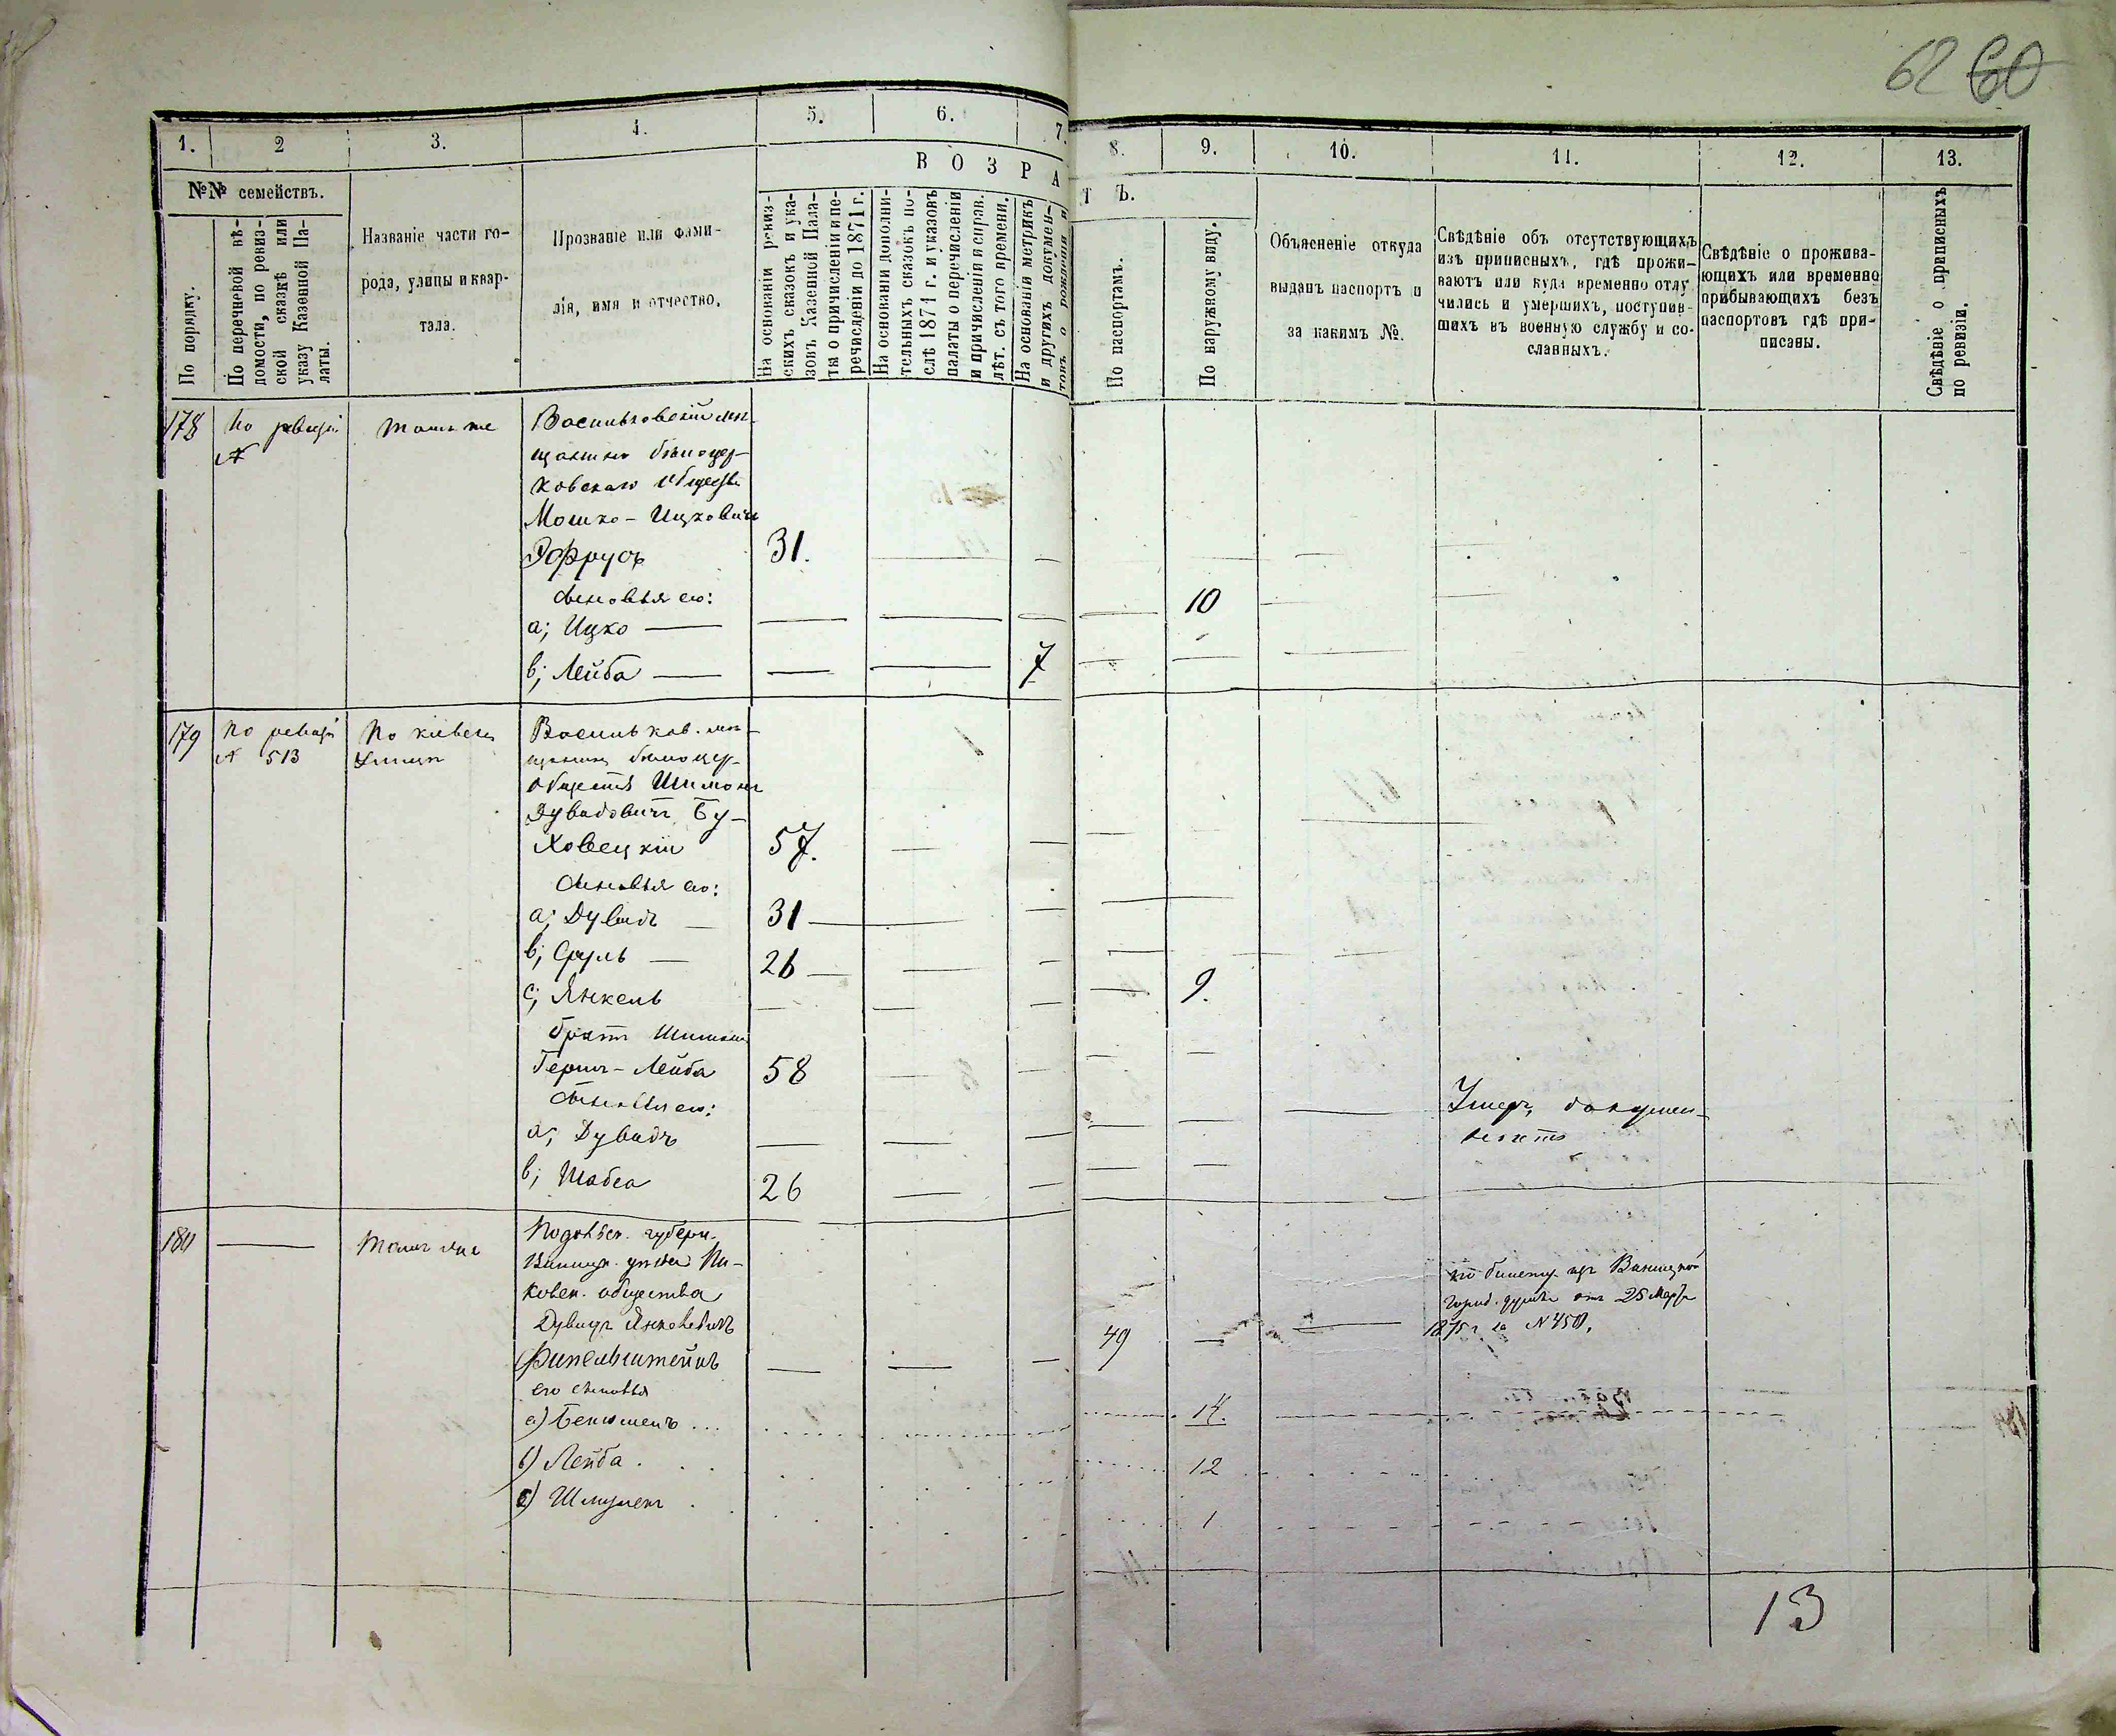 62 60
1. 2 3. 4. 5. 6. 7.
8. 9. 10. 11. 12. 13.
В О З Р А
Т Ъ.
№№ семействъ.
По порядку.
По перечневой вѣ-
домости, по ревиз-
ской сказкѣ или
указу Казенной Па-
латы.
Названіе части го-
рода, улицы и квар-
тала.
Прозваніе или фами-
лія, имя и отчество.
На основаніи ревиз-
скихъ сказокъ и ука-
зовъ Казенной Пала-
ты о причисленіи и пе-
речисленіи до 1871 г.
На основаніи дополни-
тельныхъ сказокъ по-
слѣ 1871 г. и указовъ
палаты о перечисленіи
и причисленіи и справ.
лѣт. съ того времени.
На основаніи метрикъ
и другихъ докумен-
товъ о рожденіи и
По паспортамъ.
По наружному виду.
Объясненіе откуда
выданъ паспортъ и
за какимъ №.
Свѣдѣніе объ отсутствующихъ
изъ приписныхъ, гдѣ прожи-
ваютъ или куда временно отлу
чились и умершихъ, поступив-
шихъ въ военную службу и со-
сланныхъ.
Свѣдѣніе о прожива-
ющихъ или временно
прибывающихъ безъ
паспортовъ гдѣ при-
писаны.
Свѣдѣніе о приписныхъ
по ревизіи.
178 По ревизіи Тамъ же Васильковскій мѣ-
№ щанинъ бѣлоцер-
ковскаго общества
Мошко - Ицковичъ
Эфрусъ 31.
Сыновья его: 10
а; Ицко
в; Лейба 7
179 По ревизіи По кіевской Васильков. мѣ-
№ 513 улицѣ щанинъ бѣлоцер-
общества Шимонъ
Дувидовичъ Бу-
ховецкій 57.
Сыновья его:
а; Дувидъ 31
в; Сруль 26
с; Янкель 9.
братъ Шимона
Гершъ - Лейба 58
Сыновья его: Умеръ, докумен-
а; Дувидъ
в; Шабса 26
180 Тамъ же Подольск. губерн.
Винниц. уѣзда Пи-
ковск. общества по билету изъ Винницкой
Дувидъ Янкелевичъ 49 город. думы отъ 28 Марта
Финельштейнъ 1875 г за N 450.
его сыновья
а) Беньюменъ ... 14.
в) Лейба . . . 12
с) Шмулекъ . 1
13